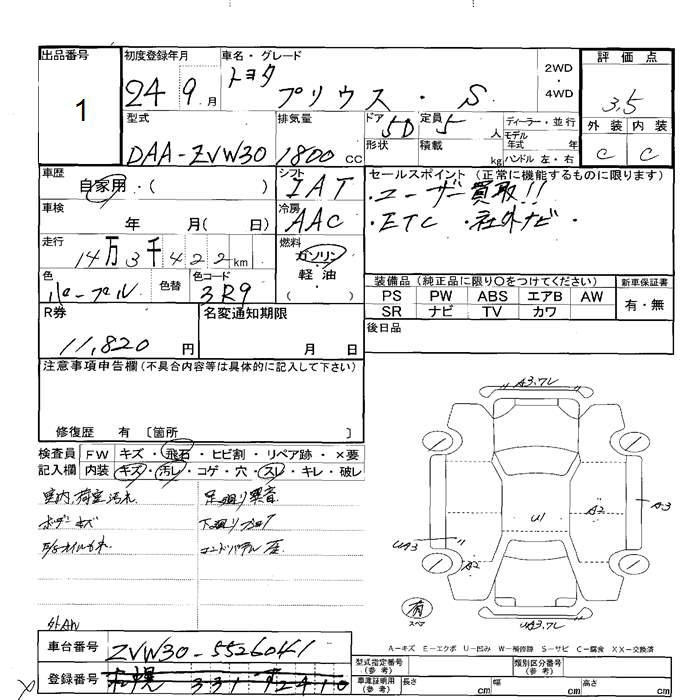 出品番号
1
初度登録年月
24 9 月
車名・グレード
トヨタ
プリウス ・ S
2WD
・
4WD
評価点
3.5
外装 内装
C C
型式
DAA-ZVW30
排気量
1800 CC
ドア 5D
形状
定員 5 人
積載 kg
ディーラー・並行
モデル
年式 年
ハンドル 左・右
車歴
自家用・( )
シフト
IAT
セールスポイント (正常に機能するものに限ります)
・ユーザー買取!!
・ETC ・社外ナビ・
車検
年 月( 日)
冷房
AAC
走行
14万3千422km
燃料
ガソリン
軽油
( )
色
パープル
色替
色コード
3R9
装備品 (純正品に限り○をつけてください)
新車保証書
PS PW ABS エアB AW
SR ナビ TV カワ
有・無
R券
11,820 円
名変通知期限
月 日
後日品
注意事項申告欄 (不具合内容等は具体的に記入して下さい)
修復歴 有 〔箇所 〕
検査員
記入欄
FW キズ・飛石・ヒビ割・リペア跡・×要
内装 キズ・汚レ・コゲ・穴・スレ・キレ・破レ
室内、荷室汚れ
足廻り異音
下廻りサビ
外AN
A3.フレ
A3
A2
U1
UA3
A2
UA3.フレ
有
スペア
A-キズ E-エクボ U-凹み W-補修跡 S-サビ C-腐食 XX-交換済
車台番号
ZVW30-5526041
登録番号
札幌 331 92410
型式指定番号
(参考)
類別区分番号
(参考)
車庫証明用
(参考)
長さ cm
幅 cm
高さ cm